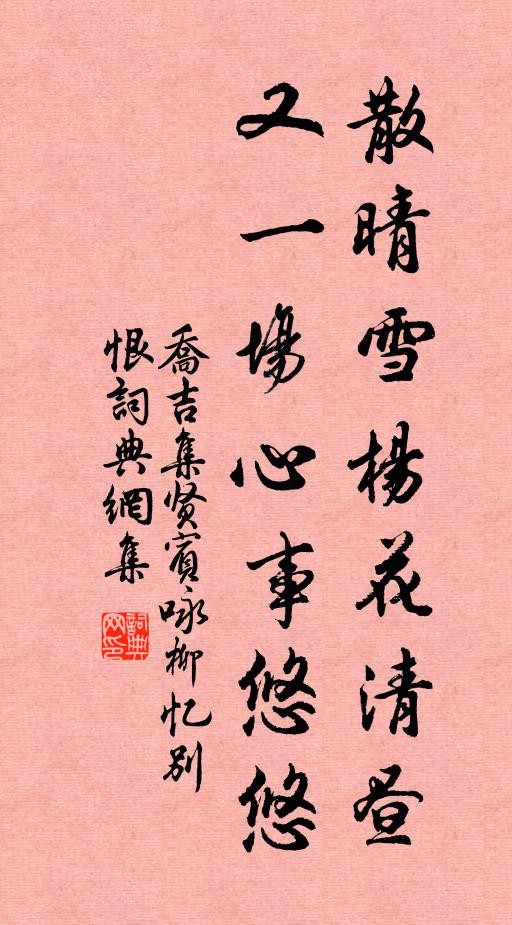 散晴雪楊花清昼
又一場心事悠悠
喬吉集贤賓咏柳忆别
恨詞典網集
詞典网印